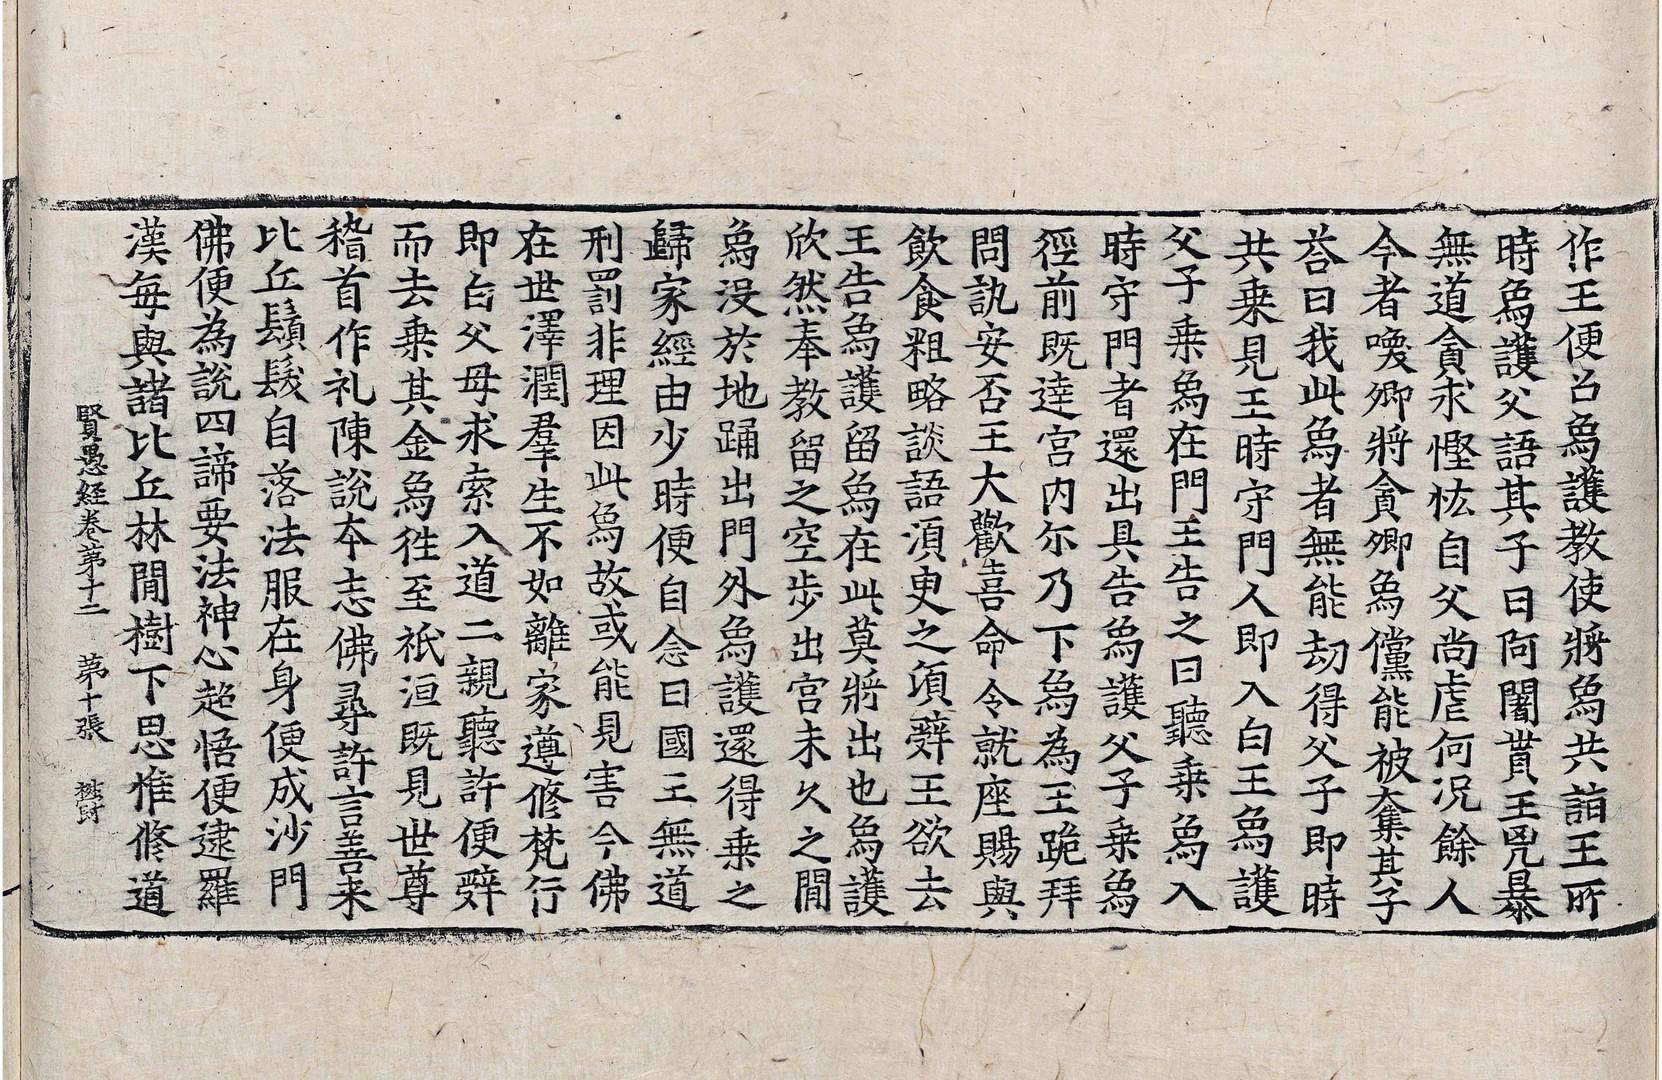 作王便召為護教使將為共詣王所
時為護父語其子曰阿闍貰王兇暴
無道貪求慳悋自父尚虐何況餘人
今者喚卿將貪卿為儻能被奪其子
荅曰我此為者無能劫得父子即時
共乗見王時守門人即入白王為護
父子乗為在門王告之曰聽乗為入
時守門者還出具告為護父子乗為
徑前既達宮内尓乃下為為王跪拜
問訊安否王大歡喜命令就座賜與
飲食粗略談語湏臾之頃辤王欲去
王告為護留為在此莫將出也為護
欣然奉教留之空步出宮未久之間
為没於地踊出門外為護還得乗之
歸家經由少時便自念曰國王無道
刑罰非理因此為故或能見害今佛
在世澤潤羣生不如離家遵修梵行
即白父母求索入道二親聽許便辤
而去乗其金為徃至祇洹既見世尊
稽首作礼陳說本志佛尋許言善来
比丘鬚髮自落法服在身便成沙門
佛便為說四諦要法神心超悟便逮羅
漢每與諸比丘林間樹下思惟修道
賢愚經卷第十二 第十張